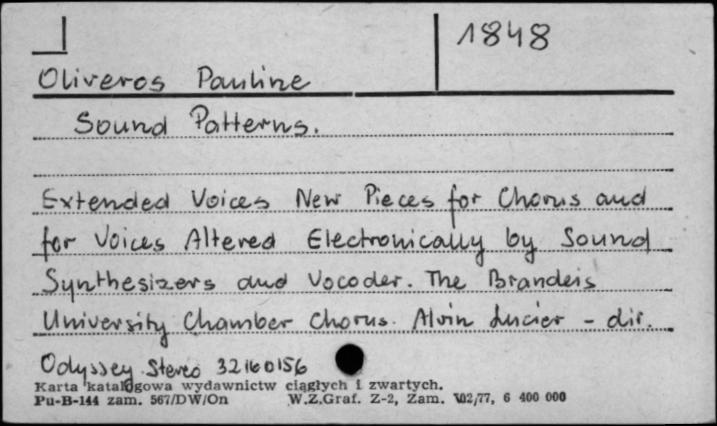 1848
Oliveros Pauline
Sound Patterns.
Extended Voices New Pieces for Chorus and
for Voices Altered Electronically by Sound
Synthesizers and Vocoder. The Brandeis
University Chamber Chorus. Alvin Lucier - dir.
Odyssey Stereo 32160156
Karta katalogowa wydawnictw ciągłych i zwartych.
Pu-B-144 zam. 567/DW/On W.Z.Graf. Z-2, Zam. 102/77, 6 400 000